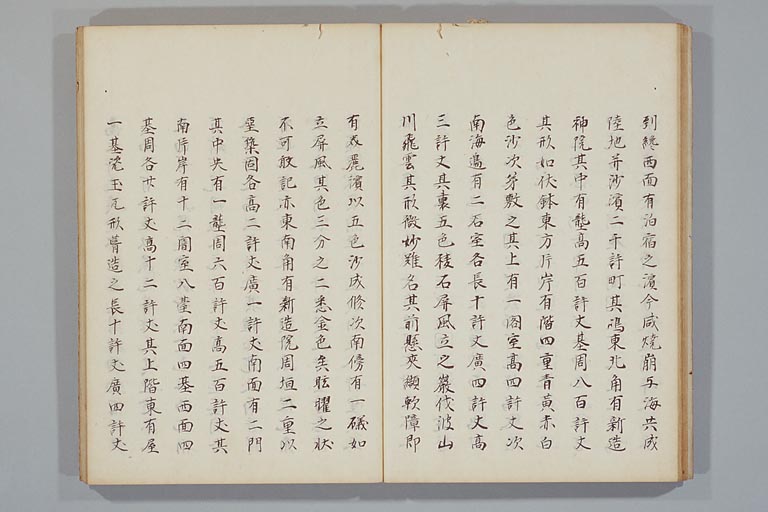 到纏西面有泊宿之濱今咸燒崩与海共成
陸地并沙濱二千許町其嶋東北角有新造
神院其中有壟高五百許丈基周八百許丈
其形如伏鉢東方片岸有階四重青黄赤白
色沙次第敷之其上有一閣室高四許丈次
南海邊有二石室各長十許丈廣四許丈高
三許丈其裏五色稜石屏風立之巖伐波山
川飛雲其形微妙難名其前懸夾纈軟障即
有美麗濱以五色沙成修次南傍有一礒如
立屏風其色三分之二悉金色矣眩曜之狀
不可敢記亦東南角有新造院周垣二重以
堊築固各高二許丈廣一許丈南面有二門
其中央有一壟周六百許丈高五百許丈其
南片岸有十二閣室八基南面四基西面四
基周各廿許丈高十二許丈其上階東有屋
一基瓷玉瓦形葺造之長十許丈廣四許丈